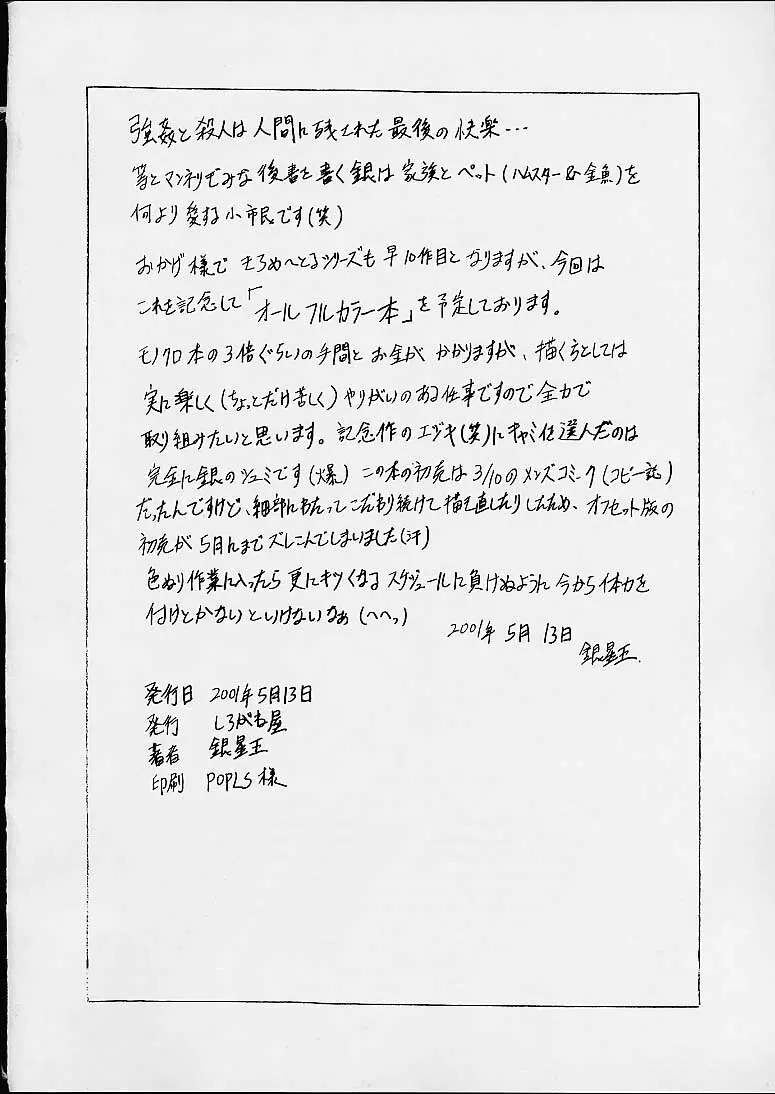 強姦と殺人は人間に残された最後の快楽…
等とマンネリでみな後書を書く銀は家族とペット(ハムスター&金魚)を
何より愛する小市民です(笑)
おかげ様で とろめへとるシリーズも早10作目となりますが、今回は
これを記念して「オールフルカラー本」を予定しております。
モノクロ本の3倍ぐらいの手間とお金がかかりますが、描く方としては
実に楽しく(ちょっとだけ苦しく)やりがいのある仕事ですので全力で
取り組みたいと思います。記念作のエジキ(笑)にキャミイを選んだのは
完全に銀のシュミです(爆) この本の初売は3/10のメンズコミーク(コピー誌)
だったんですけど、細部にわたってこだわり続けて描き直したりしたため、オフセット版の
初売が5月にまでズレこんでしまいました(汗)
色ぬり作業に入ったら更にキツくなるスケジュールに負けぬように今から体力を
付けとかないといけないなぁ(へへっ)
2001年5月13日
銀星王.
発行日 2001年5月13日
発行 しろがね屋
著者 銀星王
印刷 POPLS様